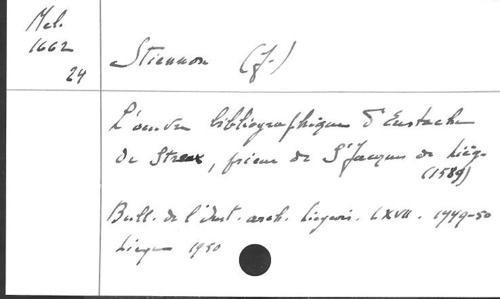 Mel.
1662
24
Stiennon (J.)
L'œuvre bibliographique d'Eustache
de Streex, prieur de St Jacques de Liège
(1589)
Bull. de l'Inst. arch. liégeois. LXVII. 1949-50
Liège 1950